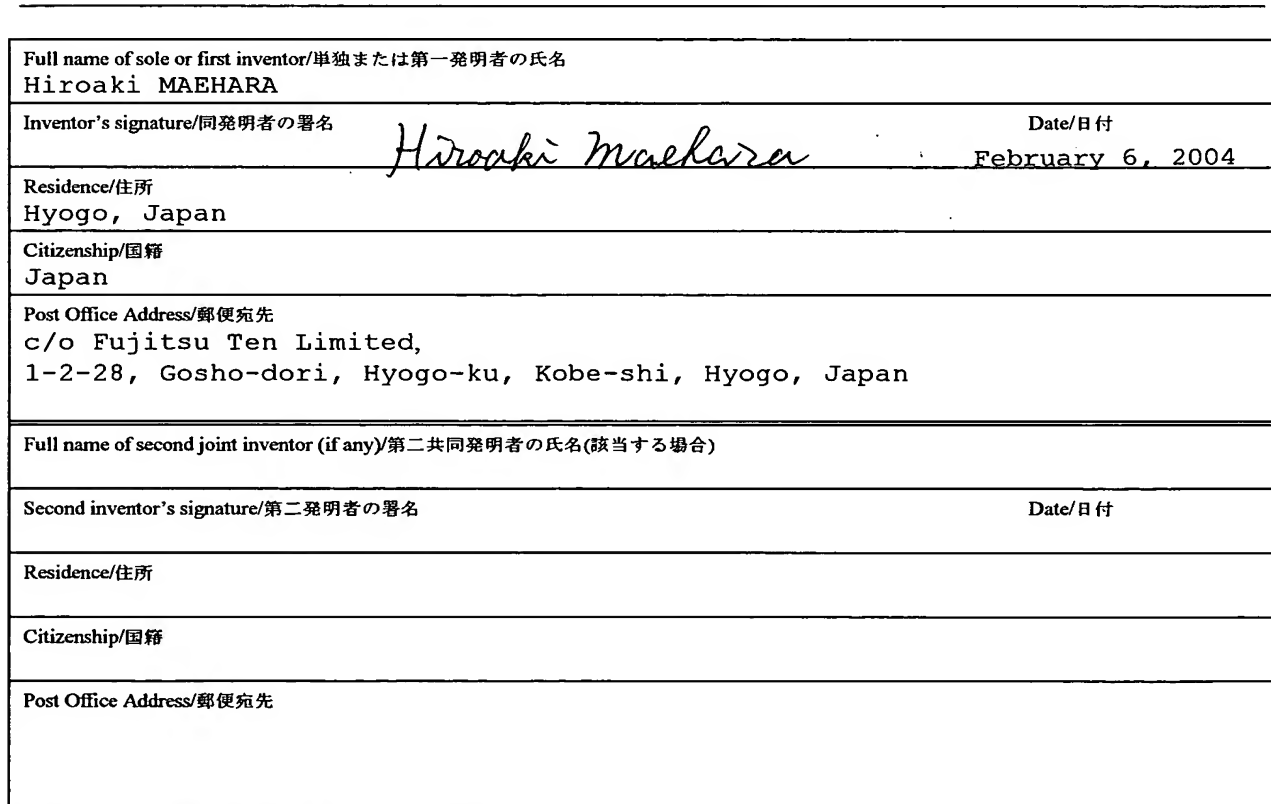 Full name of sole or first inventor/単独または第一発明者の氏名
Hiroaki MAEHARA
Inventor's signature/同発明者の署名 Date/日付
Hiroaki Maehara February 6, 2004
Residence/住所
Hyogo, Japan
Citizenship/国籍
Japan
Post Office Address/郵便宛先
c/o Fujitsu Ten Limited,
1-2-28, Gosho-dori, Hyogo-ku, Kobe-shi, Hyogo, Japan
Full name of second joint inventor (if any)/第二共同発明者の氏名(該当する場合)
Second inventor's signature/第二発明者の署名 Date/日付
Residence/住所
Citizenship/国籍
Post Office Address/郵便宛先